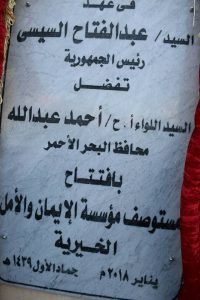 فى عهد
السيد/ عبدالفتاح السيسى
رئيس الجمهورية
تفضل
السيد اللواء أ.ح/ أحمد عبدالله
محافظ البحر الأحمر
بافتتاح
مستوصف مؤسسة الإيمان والأمل
الخيرية
يناير ٢٠١٨ م جماد الأول ١٤٣٩ هـ